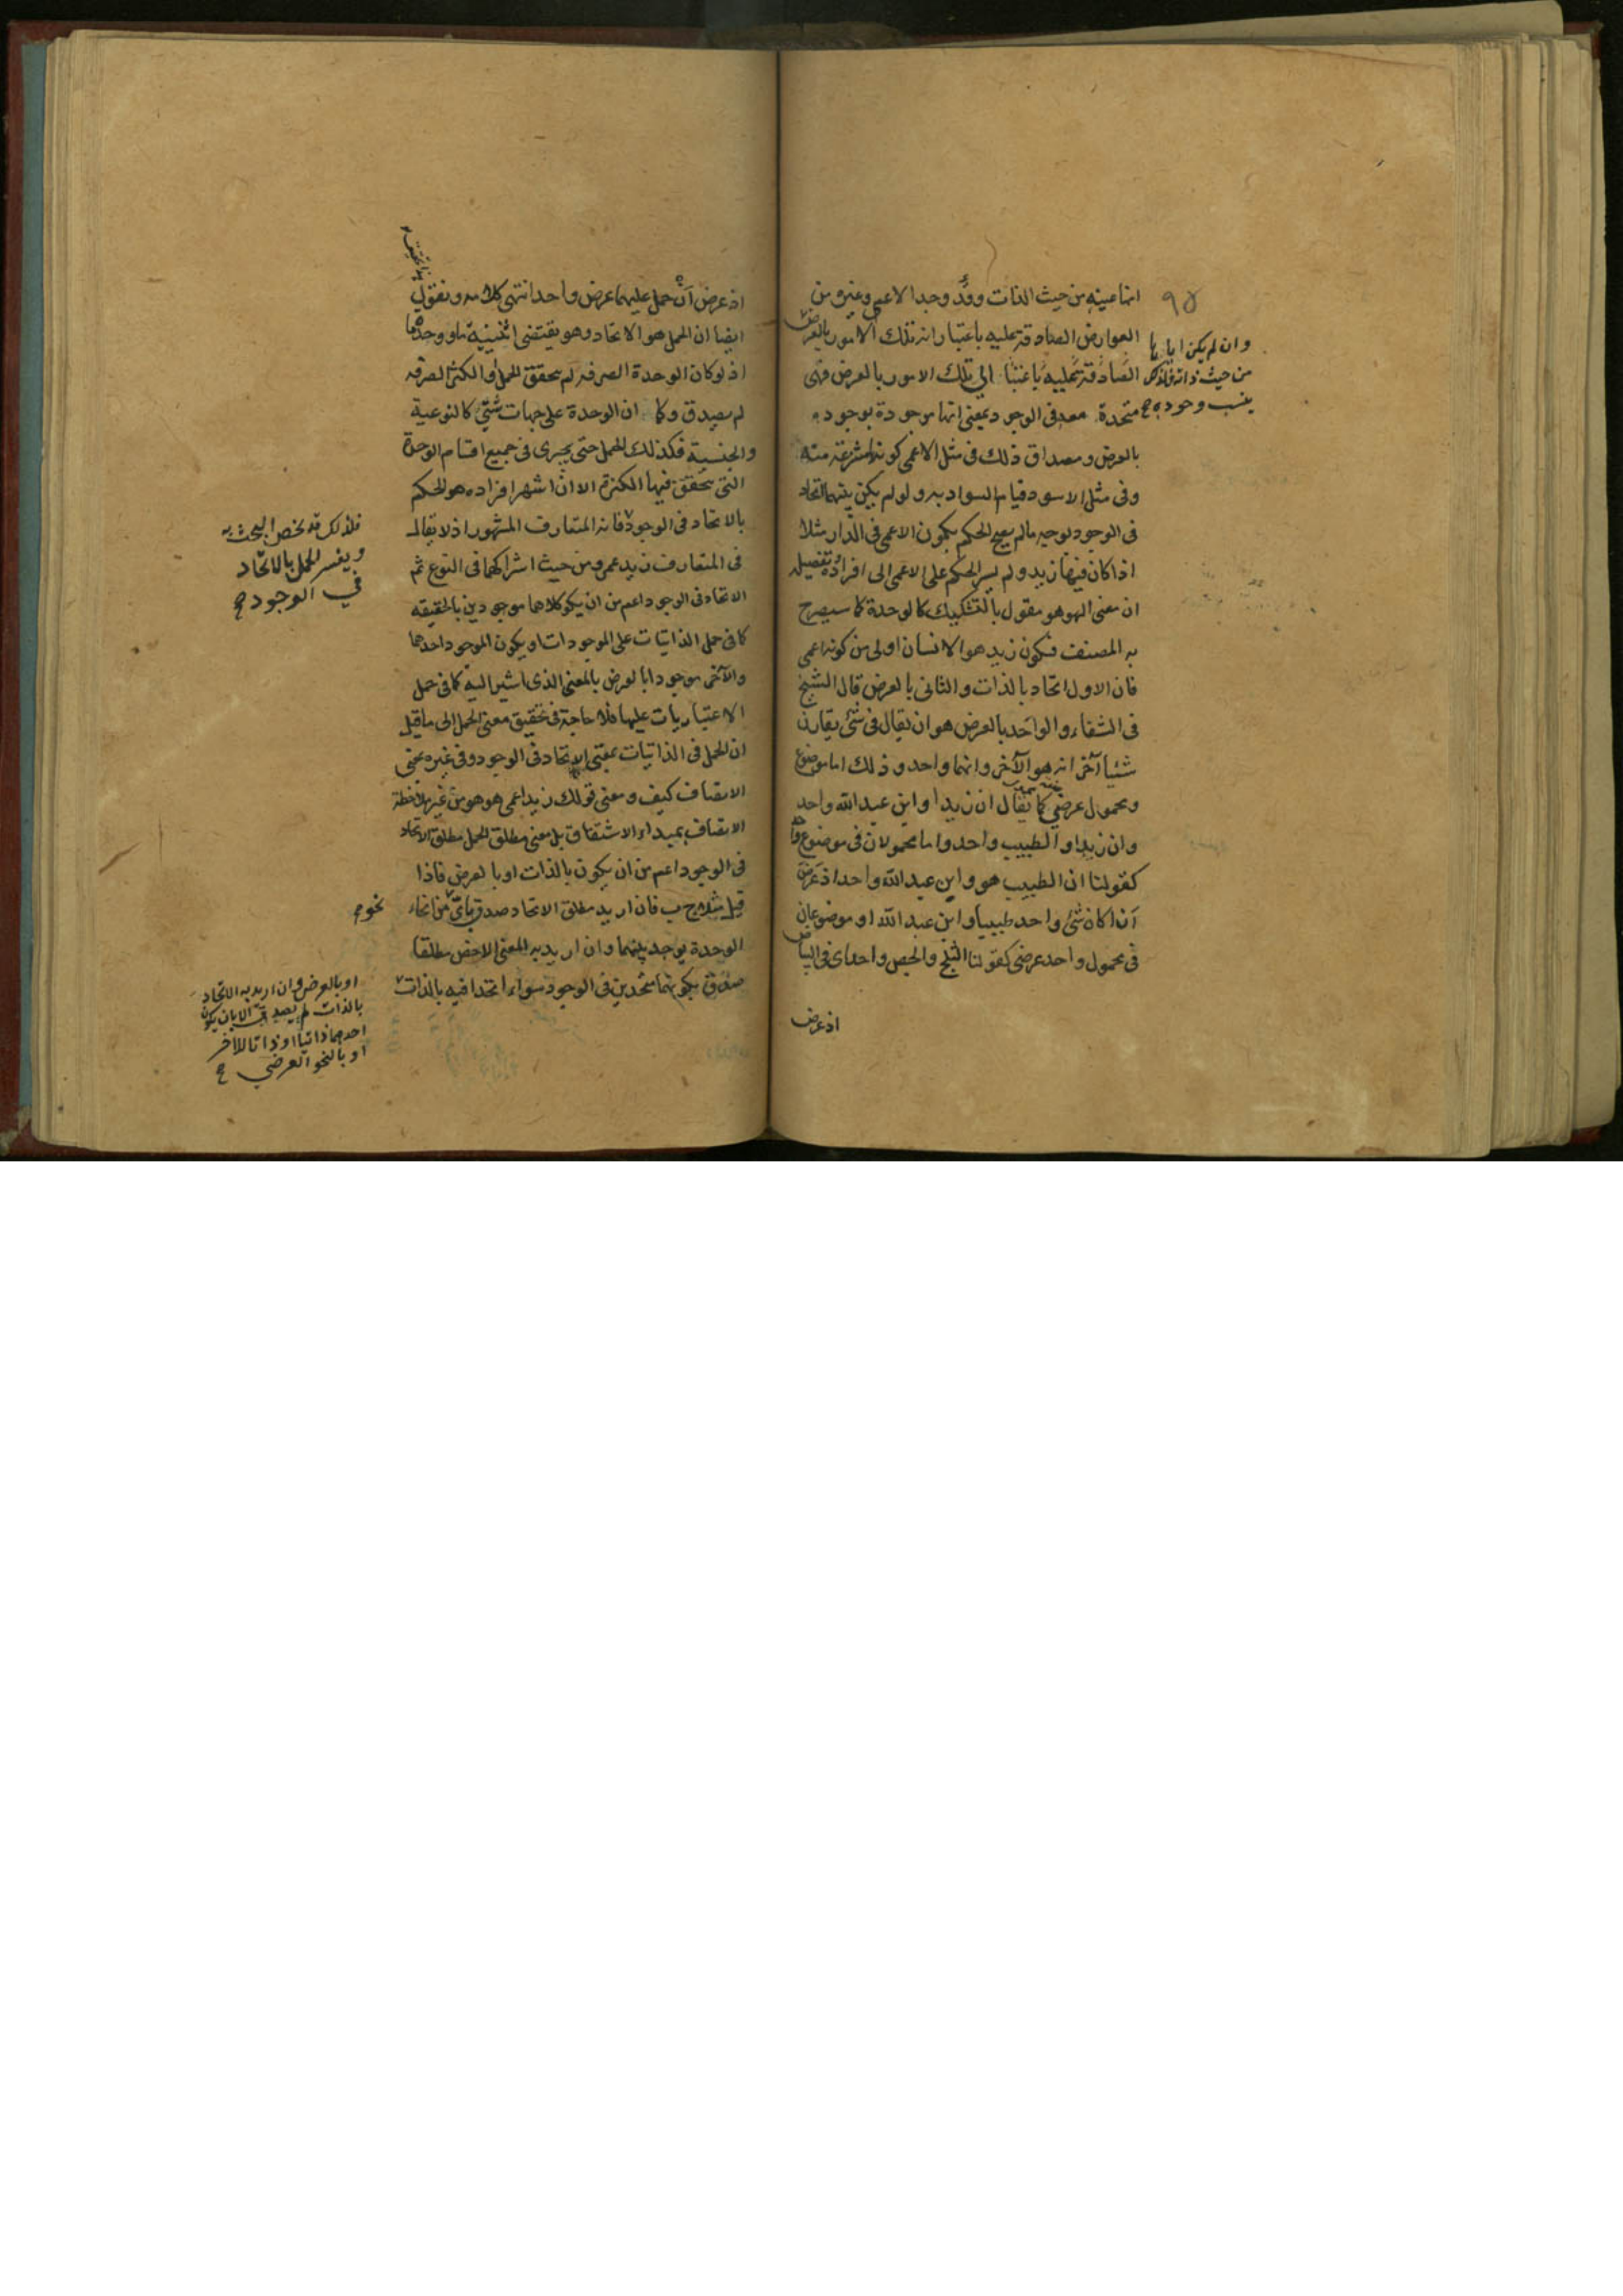 ٩٥
انها عينه من حيث الذات وقد وجد الاعمى وغيره من
العوارض الصادقة عليه باعتبار انه تلك الامور بالعرض
الصادقة عليه باعتبار الى تلك الامور بالعرض فهى
متحدة معه فى الوجود بمعنى انها موجودة بوجوده
بالعرض ومصداق ذلك فى مثل الاعمى كونه منتزعة منه
وفى مثل الاسود قيام السواد به ولو لم يكن بينهما اتحاد
فى الوجود بوجه ما لم يصح الحكم بكون الاعمى فى الدار مثلا
اذا كان فيها زيد ولم يسر الحكم على الاعمى الى افراده تفصيله
ان معنى الهوهو مقول بالتشكيك كالوحدة كما سيصرح
به المصنف فكون زيد هو الانسان اولى من كونه اعمى
فان الاول اتحاد بالذات والثانى بالعرض قال الشيخ
فى الشفاء والواحد بالعرض هو ان يقال فى شئ يقارن
شيئا آخر انه هو الآخر وانهما واحد وذلك اما موضوع
ومحمول عرضي كما يقال ان زيدا وابن عبد الله واحد
وان زيدا والطبيب واحد واما محمولان فى موضوع
كقولنا ان الطبيب هو وابن عبد الله واحد اذ عرض
ان كان شئ واحد طبيبا وابن عبد الله او موضوعان
فى محمول واحد عرضى كقولنا الثلج والجص واحد اى فى البياض
اذ عرض
وان لم يكن اياها
من حيث ذاته فلذلك
ينسب وجوده
اذ عرض أن حمل عليهما عرض واحد انتهى كلامه ونقول
ايضا ان الحمل هو الاتحاد وهو يقتضى اثنينية ما ووحدة ما
اذ لو كان الوحدة الصرفه لم يتحقق الحمل او الكثرة الصرفه
لم يصدق وكما ان الوحدة على جهات شتى كالنوعية
والجنسية فكذلك الحمل حتى يجرى فى جميع اقسام الوحدة
التى يتحقق فيها الكثرة الا ان اشهر افراده هو الحكم
بالاتحاد فى الوجود فانه المتعارف المشهور اذ لا يقال
فى المتعارف زيد عمرو من حيث اشتراكهما فى النوع ثم
الاتحاد فى الوجود اعم من ان يكون كلاهما موجودين بالحقيقه
كما فى حمل الذاتيات على الموجودات او يكون الموجود احدهما
والآخر موجودا بالعرض بالمعنى الذى اشير اليه كما فى حمل
الاعتباريات عليها فلا حاجة فى تحقيق معنى الحمل الى ما قيل
ان الحمل فى الذاتيات بمعنى الاتحاد فى الوجود وفى غيره بمعنى
الاتصاف كيف ومعنى قولك زيد اعمى هو هو من غير ملاحظة
الاتصاف بمبداء الاشتقاق بل معنى مطلق الحمل مطلق الاتحاد
فى الوجود اعم من ان يكون بالذات او بالعرض فاذا
قيل مثلا ج ب فان اريد مطلق الاتحاد صدق باى من انحاء
الوحدة يوجد بينهما وان اريد به المعنى الاخص مطلقا
صدق بكونهما متحدين فى الوجود سواء اتحدا فيه بالذات
فلذلك قد يخص البحث به
ويفسر الحمل بالاتحاد
في الوجود
نحو
او بالعرض وان اريد به الاتحاد
بالذات لم يصدق الا بان يكون
احدهما ذاتيا او ذاتا للاخر
او بالنحو العرضي